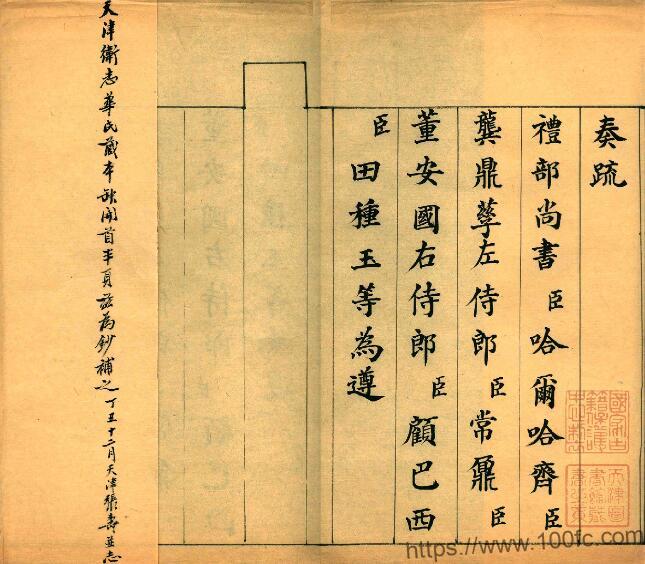 奏疏
禮部尚書臣哈爾哈齊臣
龔鼎孳左侍郎臣常鼐臣
董安國右侍郎臣顧巴西
臣田種玉等為遵
天津衛志華氏藏本缺開首半頁茲為鈔補之丁丑十二月天津張壽並志
https://www.100fc.com